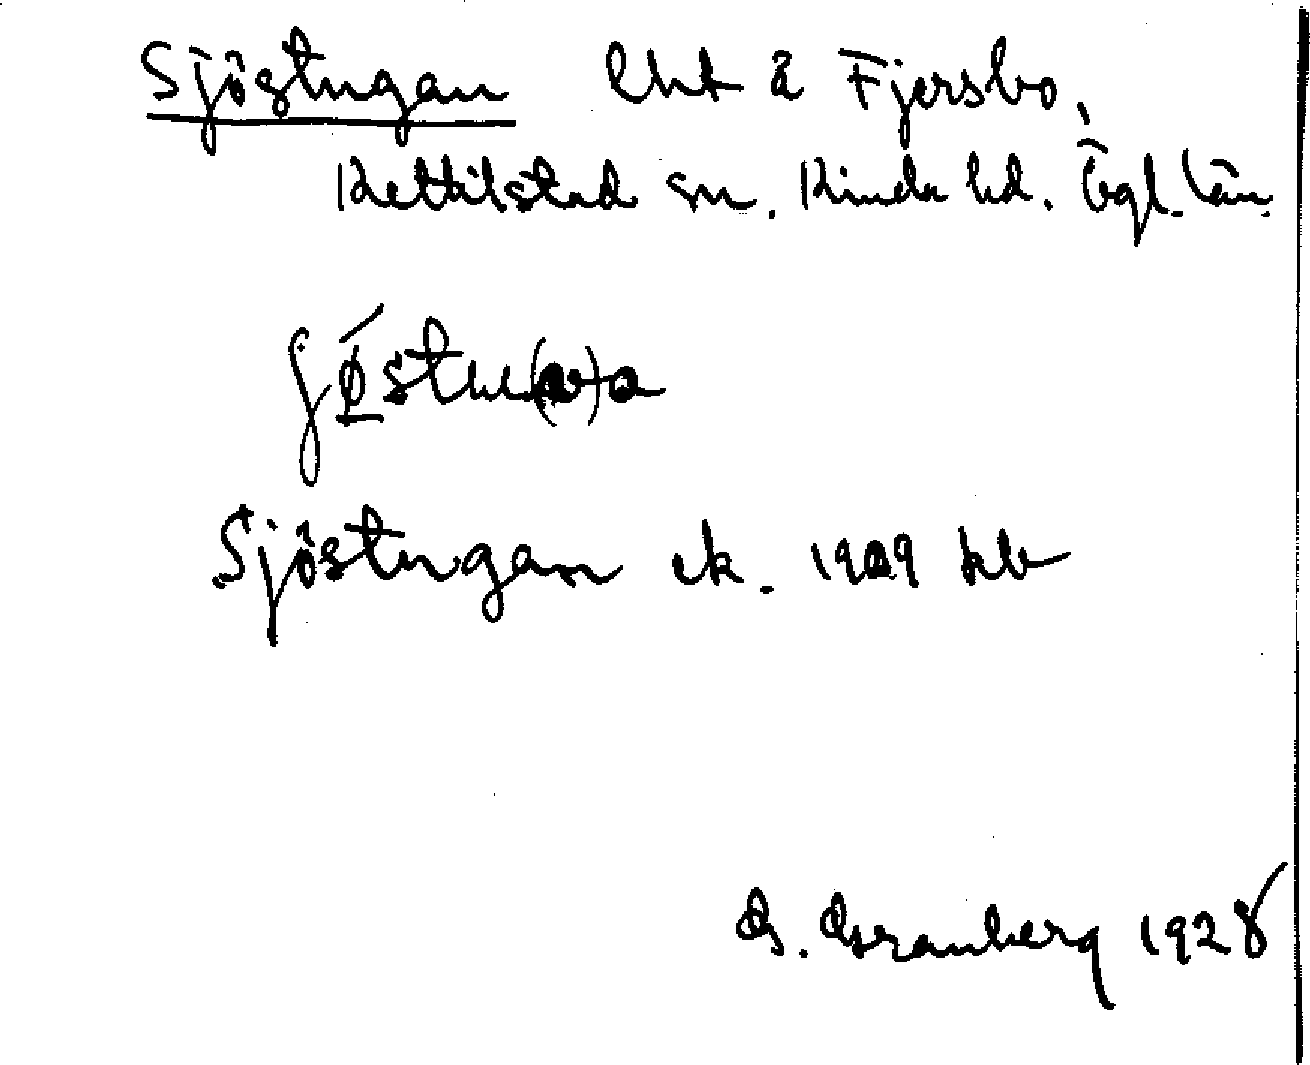 Sjöstugan lht å Fjersbo,
Kettilstad sn. Kinda hd. Ögl. län.
Sjöstugan ek. 1909 kb
G. Granberg 1928